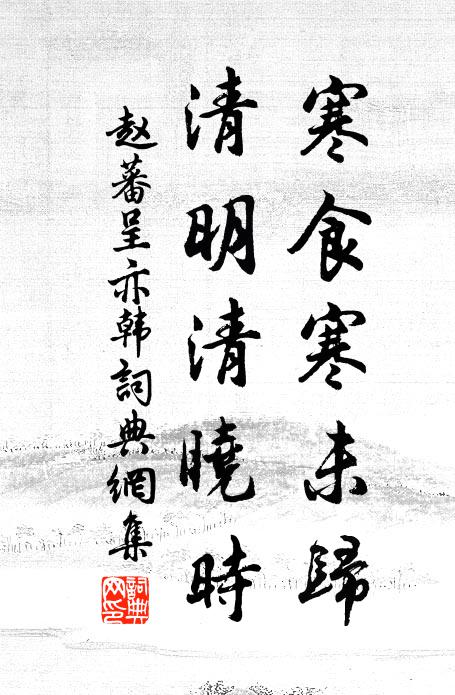 寒食寒未歸
清明清曉時
赵蕃呈亦韩詞典網集
詞典网印